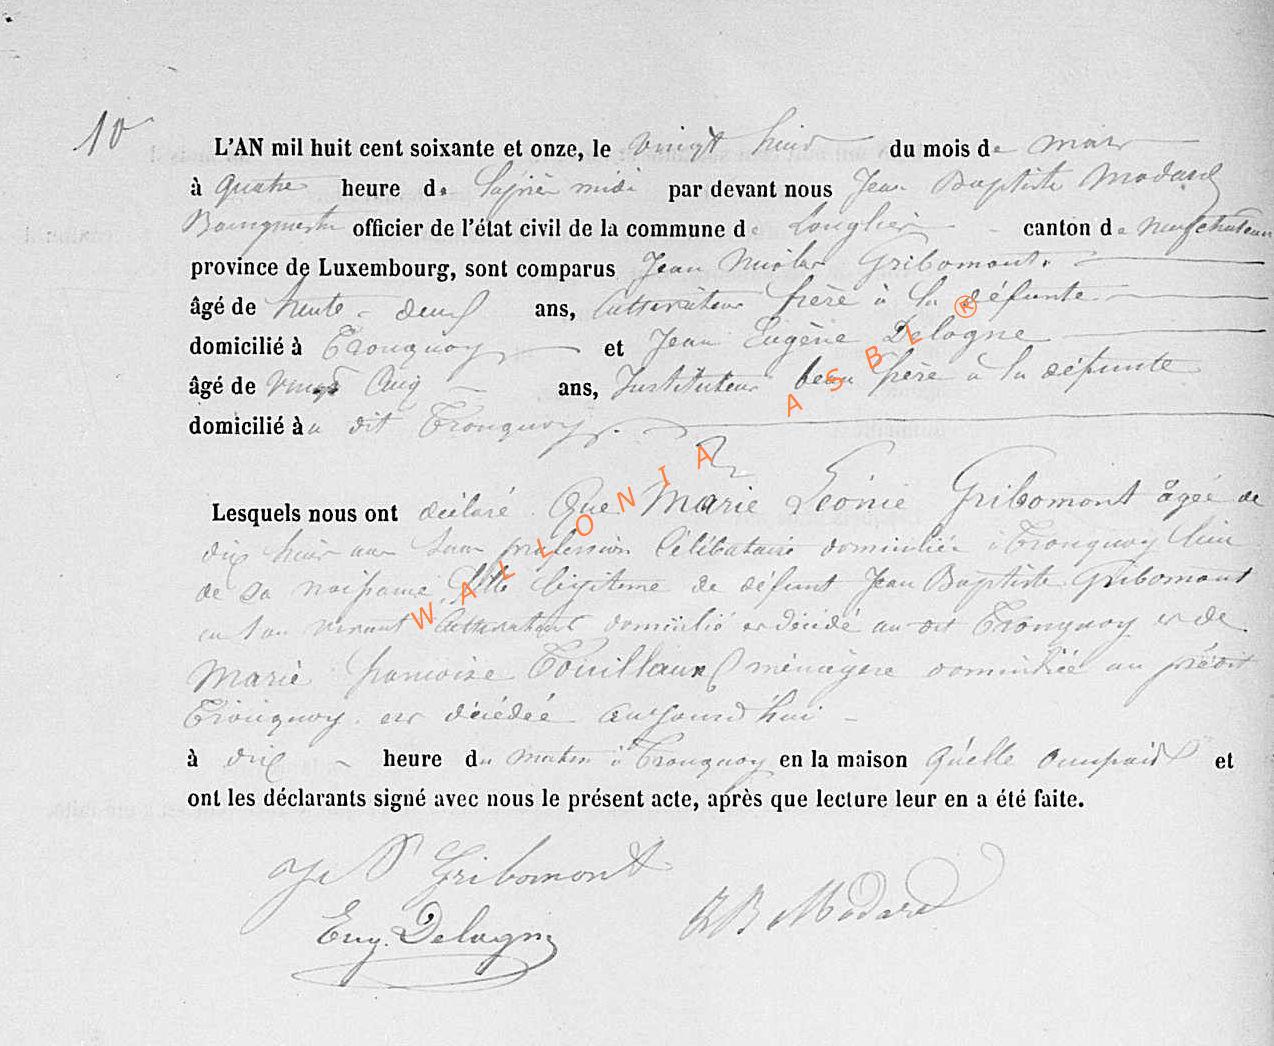 10
L'AN mil huit cent soixante et onze, le vingt huit du mois de mars
à quatre heure de l'après midi par devant nous Jean Baptiste Modard
Bourgmestre officier de l'état civil de la commune de Longlier canton de neufchateau
province de Luxembourg, sont comparus Jean Nicolas Gribomont.
âgé de trente-deux ans, cultivateur frère à la défunte
domicilié à Tronquoy et Jean Eugène Delogne
âgé de vingt cinq ans, Instituteur beau frère à la défunte
domicilié à au dit Tronquoy.
Lesquels nous ont déclaré Que Marie Léonie Gribomont âgée de
dix huit ans sans profession Célibataire domiciliée à Tronquoy lieu
de sa naissance, fille légitime de défunt Jean Baptiste Gribomont
en son vivant cultivateur domicilié et décédé au dit Tronquoy et de
Marie françoise Touillaux ménagère domiciliée au prédit
Tronquoy est décédée aujourd'hui
à dix heure du matin à Tronquoy en la maison qu'elle occupait et
ont les déclarants signé avec nous le présent acte, après que lecture leur en a été faite.
Gribomont
Eug. Delogne
JB Modard
WALLONIA ASBL ®